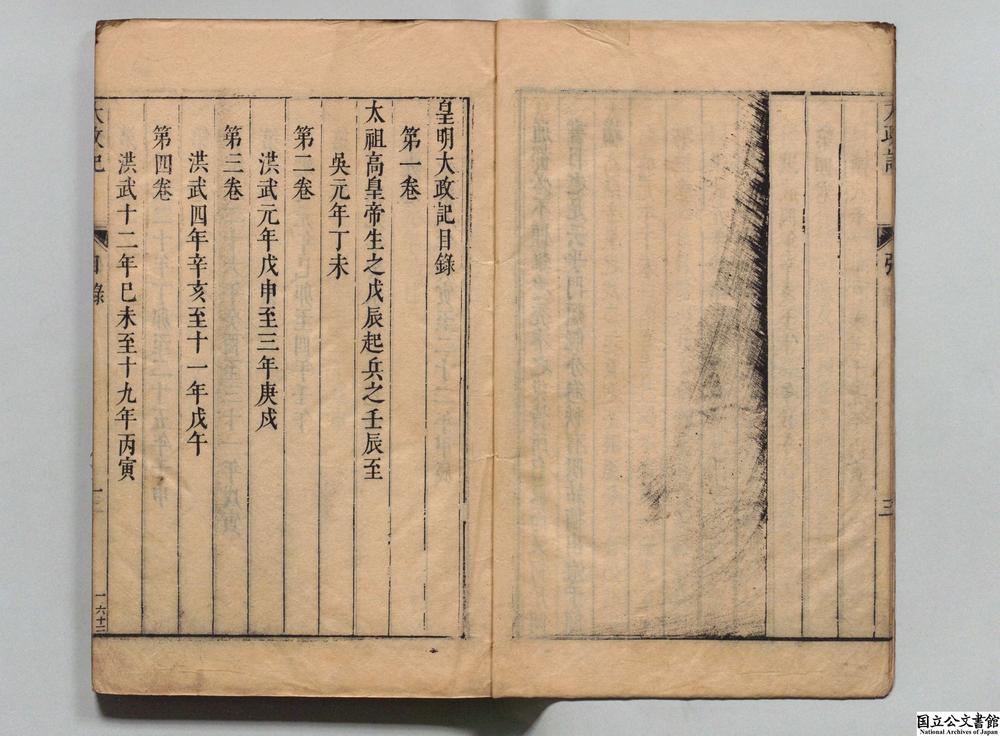 皇明大政記目錄
第一卷
太祖高皇帝生之戊辰起兵之壬辰至
吳元年丁未
第二卷
洪武元年戊申至三年庚戍
第三卷
洪武四年辛亥至十一年戊午
第四卷
洪武十二年巳未至十九年丙寅
大政記
目錄
一六十二
三
国立公文書館
National Archives of Japan